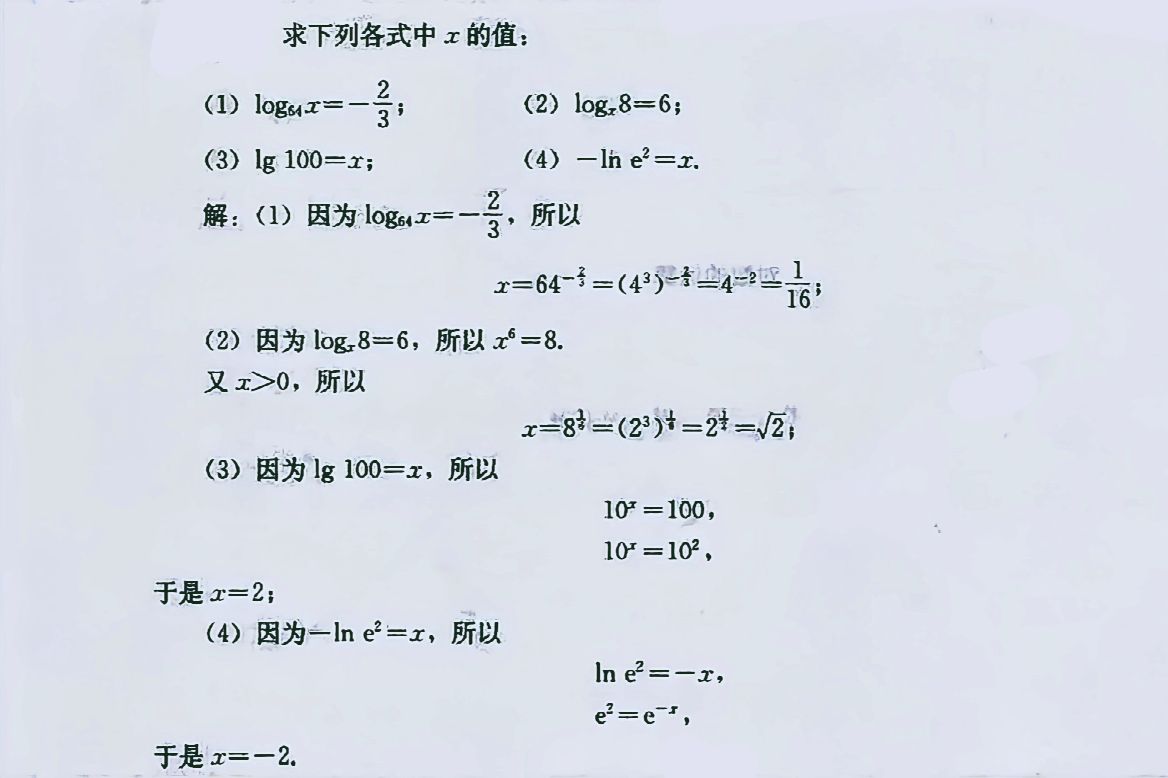 求下列各式中 x 的值：
(1) log₆₄x=-2/3；  (2) logₓ8=6；
(3) lg 100=x；  (4) -ln e²=x.
解：(1) 因为 log₆₄x=-2/3，所以
x=64^(-2/3)=(4³)^(-2/3)=4⁻²=1/16；
(2) 因为 logₓ8=6，所以 x⁶=8.
又 x>0，所以
x=8^(1/6)=(2³)^(1/6)=2^(1/2)=√2；
(3) 因为 lg 100=x，所以
10ˣ=100，
10ˣ=10²，
于是 x=2；
(4) 因为-ln e²=x，所以
ln e²=-x，
e²=e⁻ˣ，
于是 x=-2.